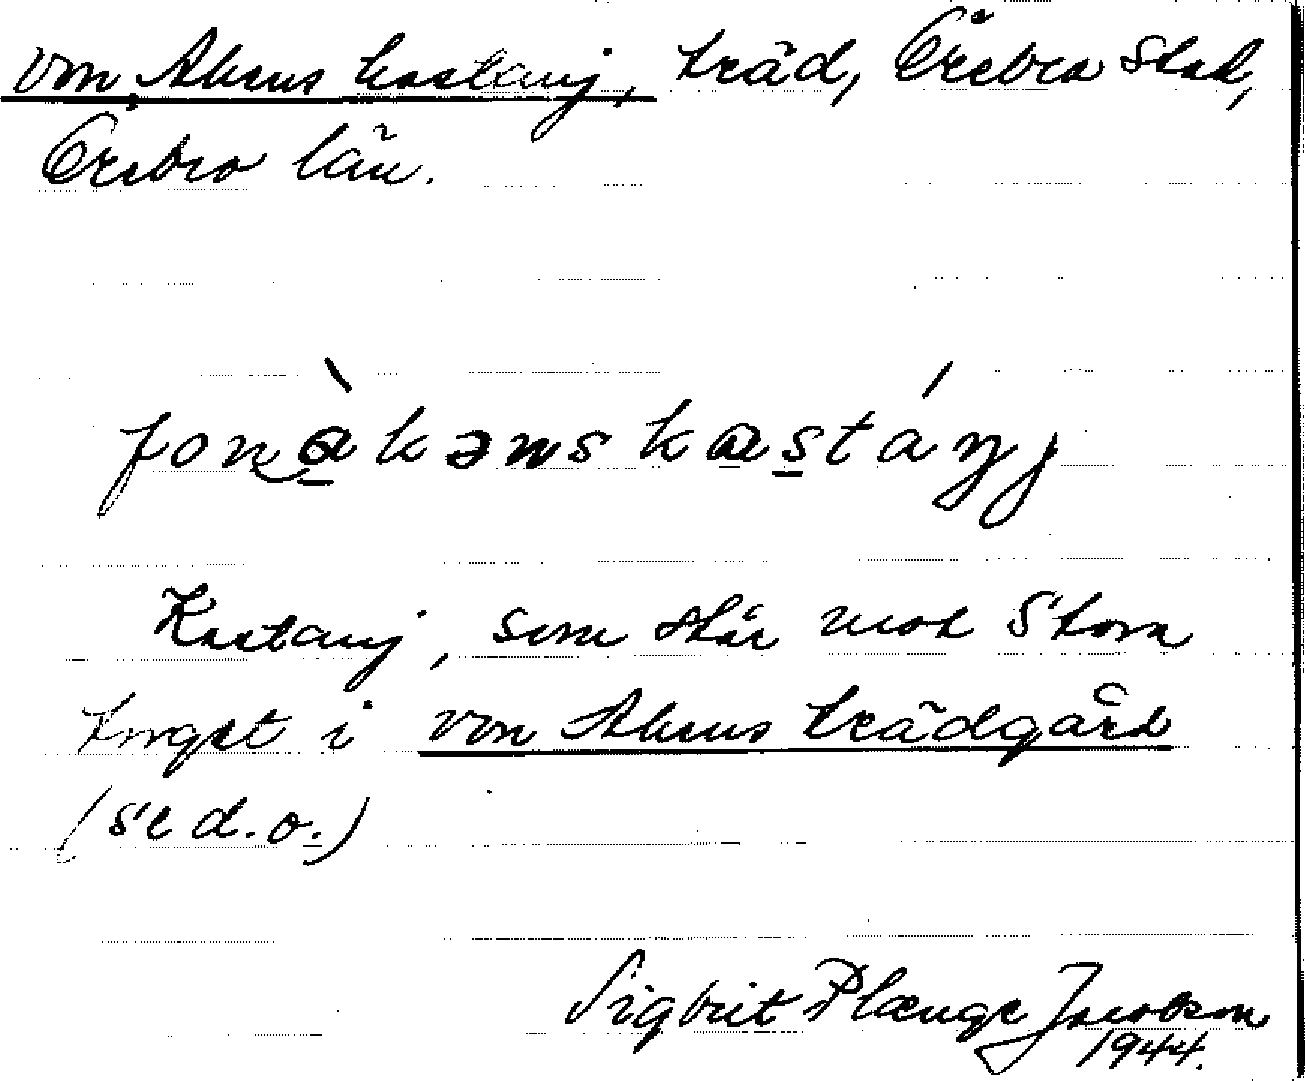 von Akens kastanj, träd, Örebro stad,
Örebro län.
fonàkənskastáŋj
Kastanj, som står mot Stora
torget i von Akens trädgård
(se d.o.)
Sigbrit Plænge Jacobson
1944.